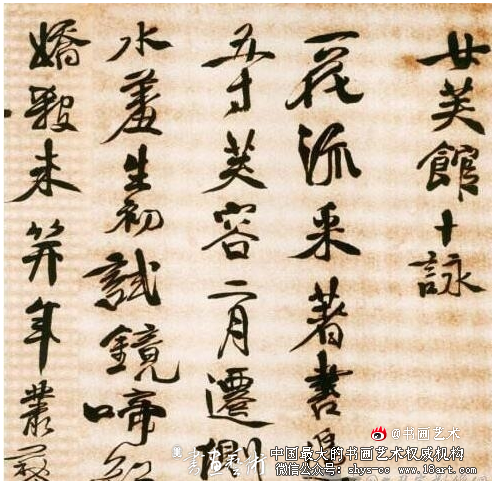 女芙館十詠
一花派采著書
五寸芙容二月遷
水羞生初試鏡啼
嬌未笄年叢
@书画艺术
中国最大的书画艺术权威机构
微信公众号：shys-cc www.18art.com